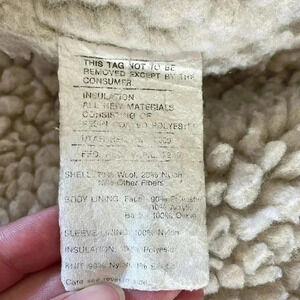 THIS TAG NOT TO BE
REMOVED EXCEPT BY THE
CONSUMER
INSULATION
ALL NEW MATERIALS
CONSISTING OF
RESIN COATED POLYESTER
SHELL: Wool, 20% Nylon
Other Fibers
BODY LINING: Face: 90% Polyester
10% Acrylic
100%
SLEEVE LINING: 100% Nylon
INSULATION: 100% Polyester
KNIT: Nylon,
Care see reverse side